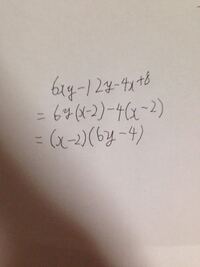 6xy-12y-4x+8
= 6y(x-2)-4(x-2)
= (x-2)(6y-4)